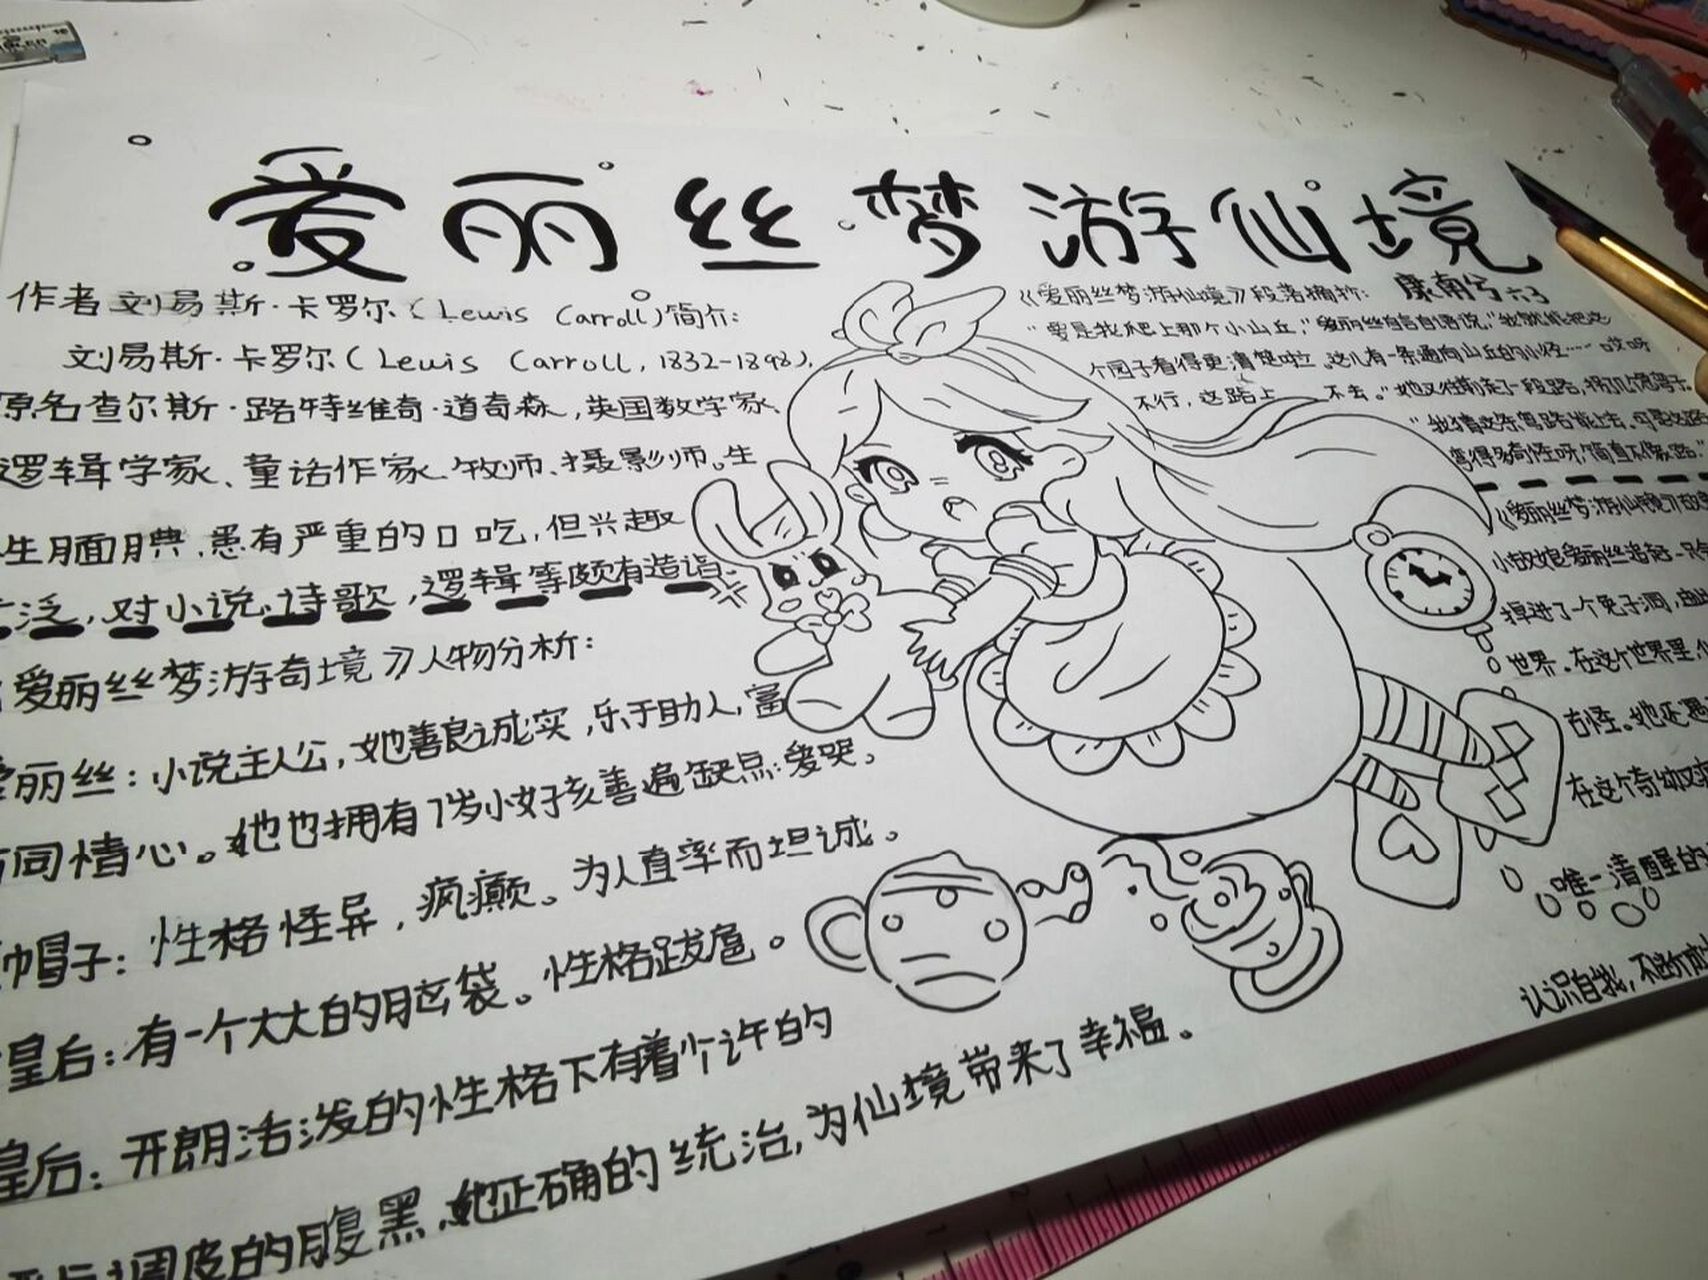 爱丽丝梦游仙境
作者刘易斯·卡罗尔(Lewis Carroll)简介:
刘易斯·卡罗尔(Lewis Carroll, 1832-1898),
原名查尔斯·路特维奇·道奇森,英国数学家、
逻辑学家、童话作家、牧师、摄影师。生
性腼腆,患有严重的口吃,但兴趣
广泛,对小说、诗歌,逻辑等颇有造诣。
爱丽丝梦游奇境》人物分析:
爱丽丝:小说主人公,她善良诚实,乐于助人,富
有同情心。她也拥有7岁小女孩普遍缺点:爱哭。
帽子:性格怪异,疯癫。为人直率而坦诚。
皇后:有一个大大的脑袋。性格跋扈。
皇后:开朗活泼的性格下有着个许的
调皮的腹黑,她正确的统治,为仙境带来了幸福。
《爱丽丝梦游仙境》段落摘抄:
康南兮 六3
"要是我爬上那个小山丘,"爱丽丝自言自语说,"我就能把这
个园子看得更清楚啦。这儿有一条通向山丘的小径……哎呀
不行,这路上 不去。"她又往前走了一段路,拐了几个急弯子。
"我猜这条弯路能上去,可是这路
弯得多奇怪呀,简直不像路.
《爱丽丝梦游仙境》故
小姑娘爱丽丝追赶一只
掉进了一个兔子洞,由此
世界。在这个世界里,
古怪。她还遇
在这个奇幻又疯
唯一清醒的
认识自我,不断